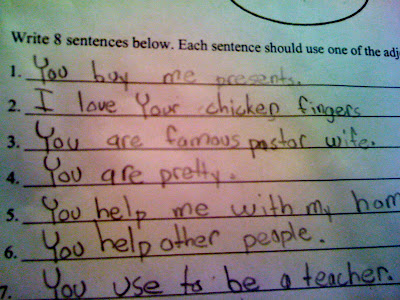 Write 8 sentences below. Each sentence should use one of the adj
1. You buy me presents.
2. I love Your chicken fingers
3. You are famous pastor wife.
4. You are pretty.
5. You help me with my hom
6. You help other people.
7. You use to be a teacher.